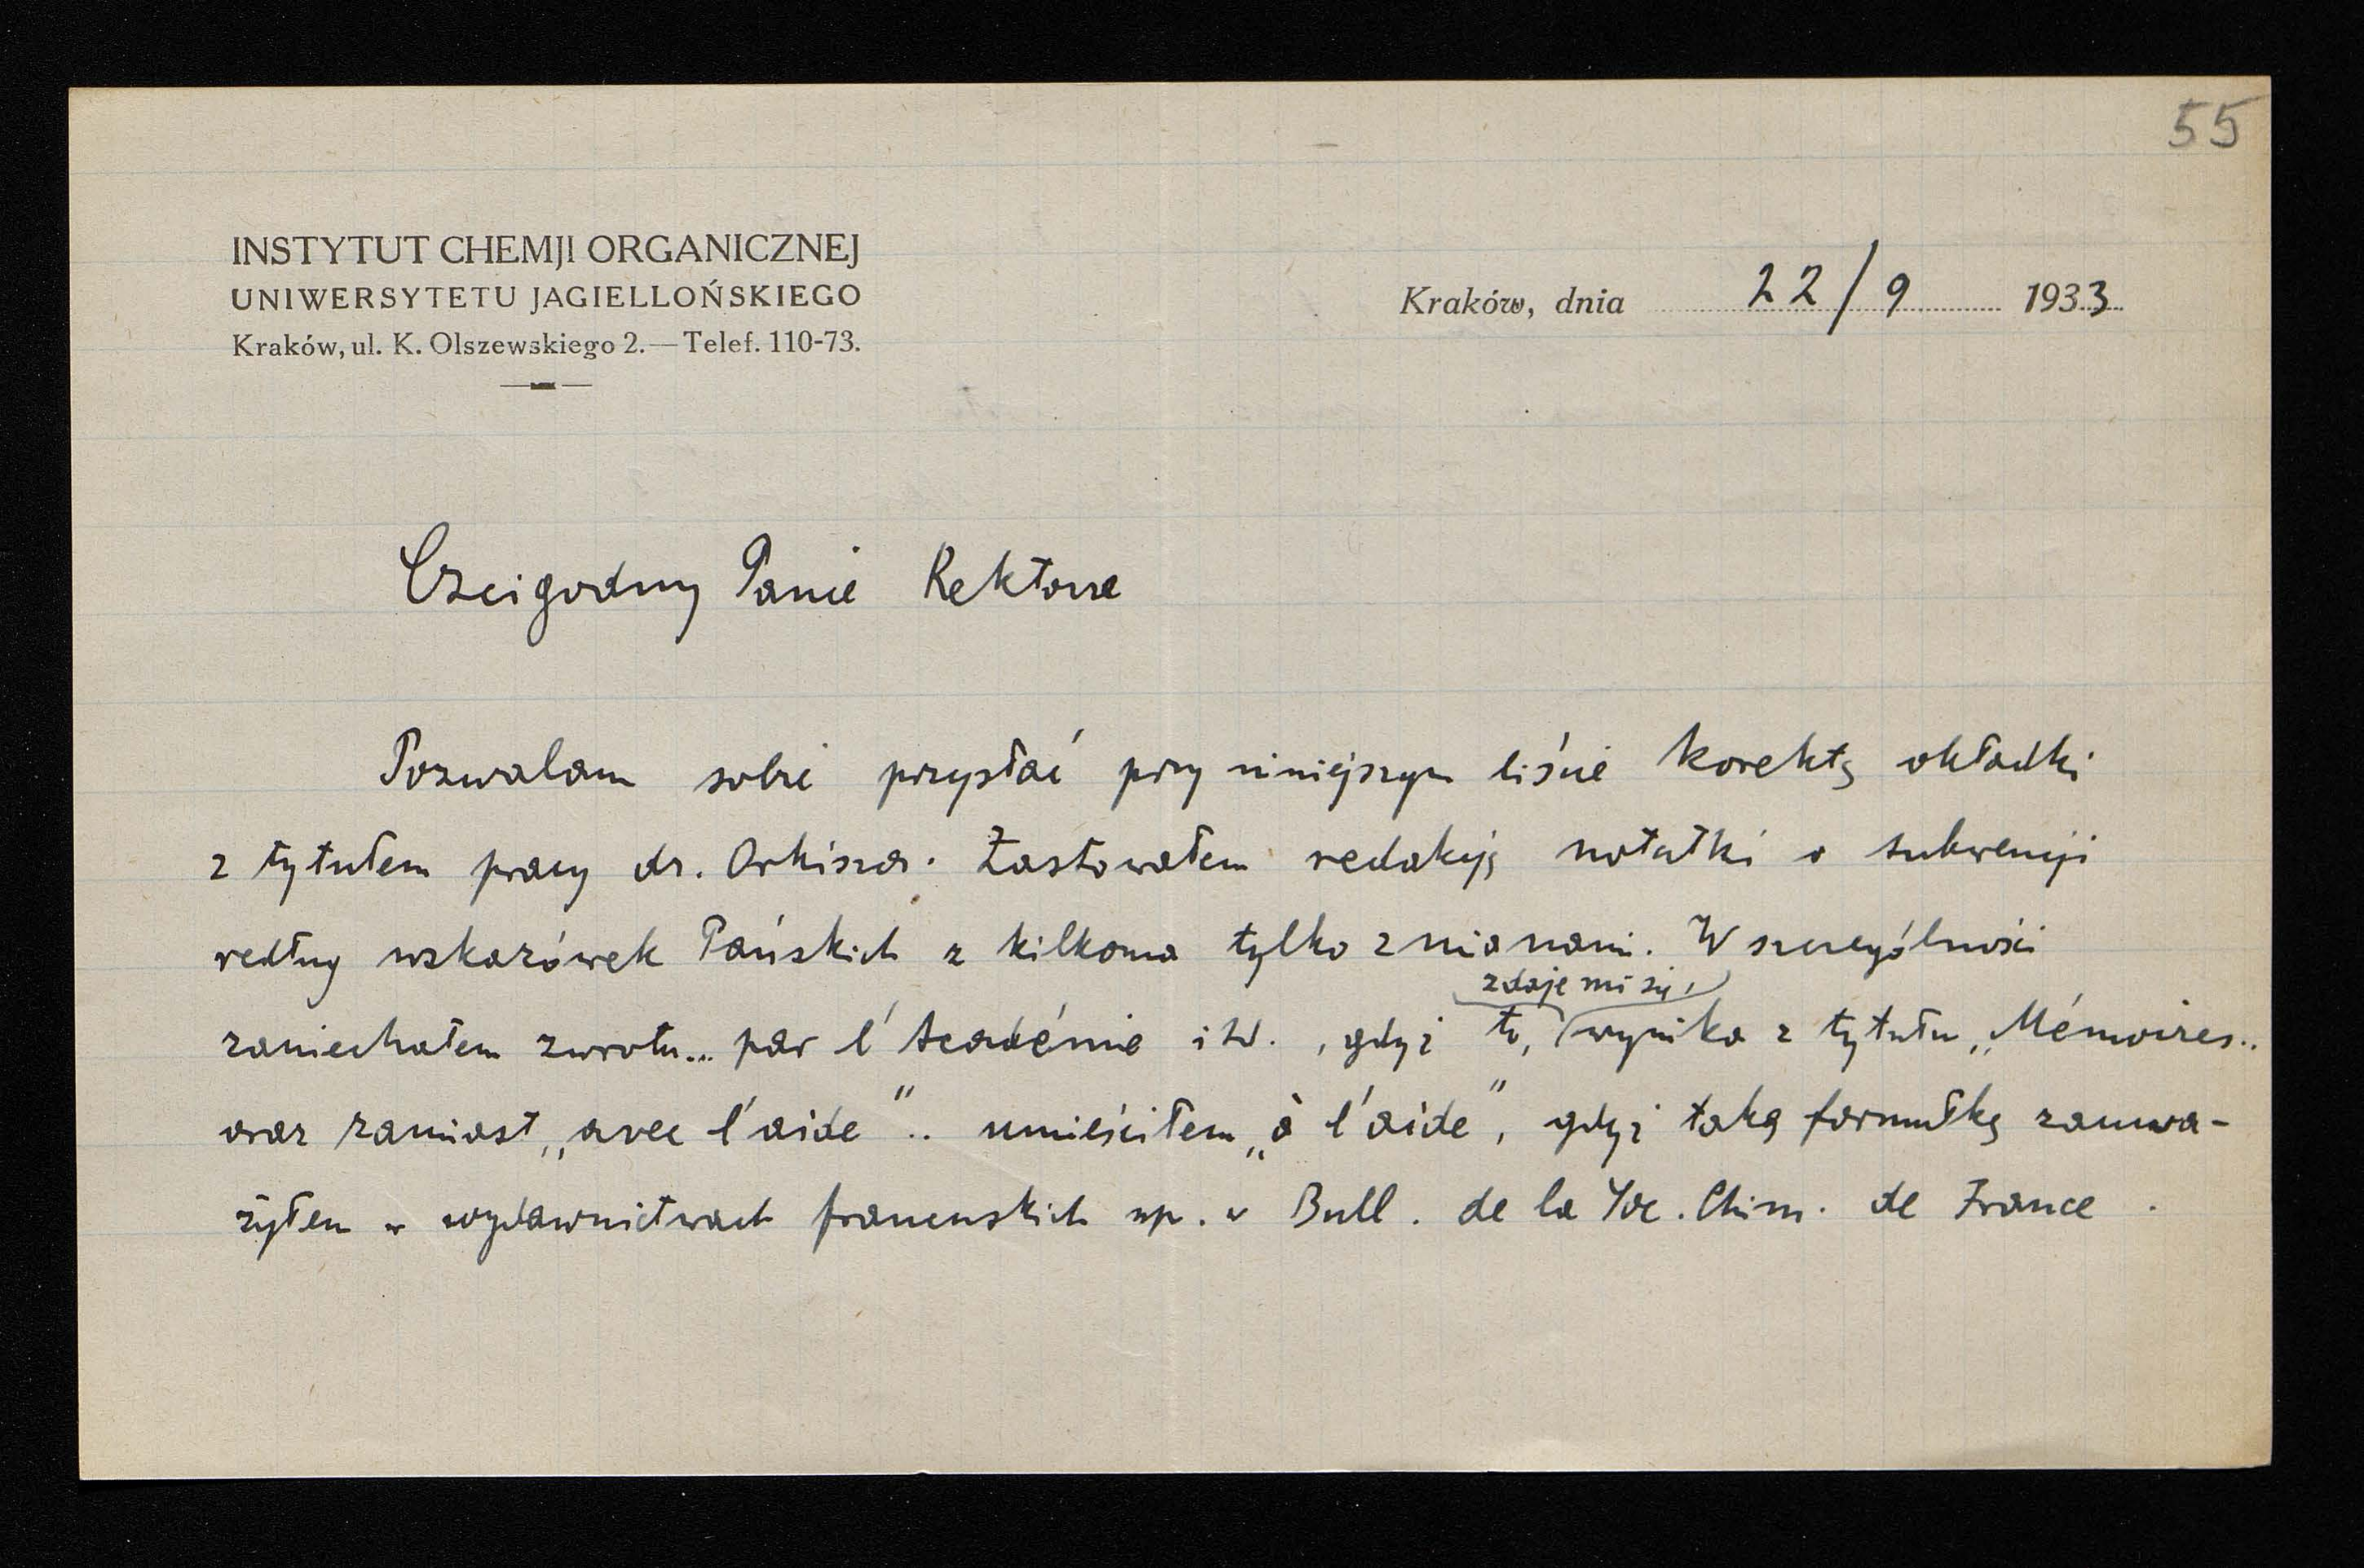 55
INSTYTUT CHEMJI ORGANICZNEJ
UNIWERSYTETU JAGIELLOŃSKIEGO
Kraków, ul. K. Olszewskiego 2. — Telef. 110-73.
Kraków, dnia 22/9 1933
Czcigodny Panie Rektorze
Pozwalam sobie przysłać przy niniejszym liście korektę okładki
z tytułem pracy dr. Orkisza. Zastosowałem redakcję notatki o subwencji
według wskazówek Pańskich z kilkoma tylko zmianami. W szczególności
zdaje mi się,
zaniechałem zwrotu... par l'Académie itd., gdyż to, wynika z tytułu „Mémoires..
oraz zamiast „avec l'aide".. umieściłem „à l'aide", gdyż taką formułkę zauwa-
żyłem w wydawnictwach francuskich np. w Bull. de la Soc. Chim. de France.